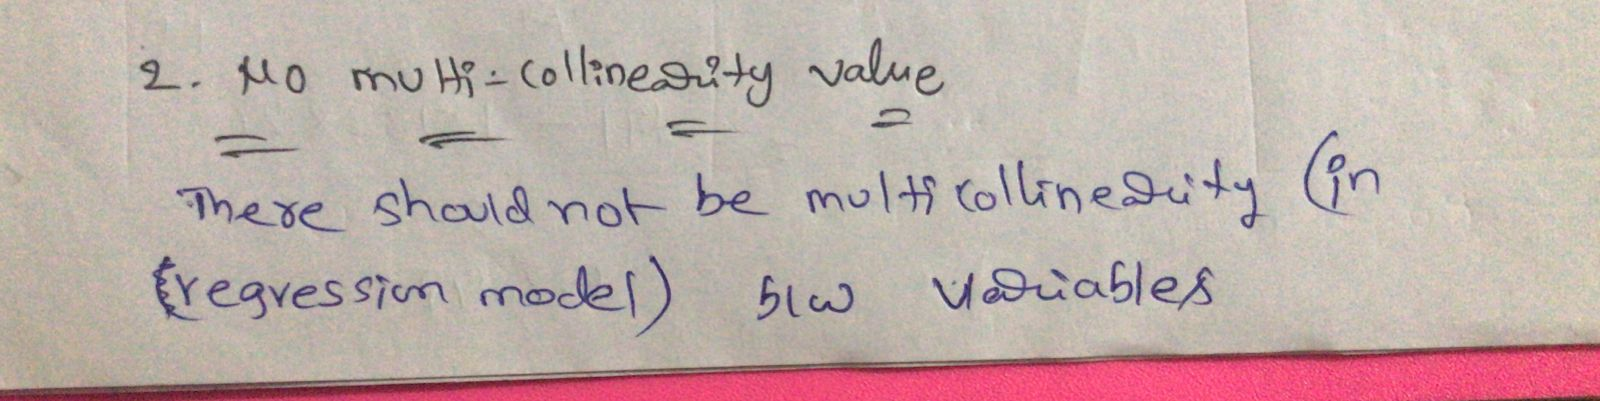 2. No multi-collinearity value
There should not be multicollinearity (in
(regression model) b/w variables